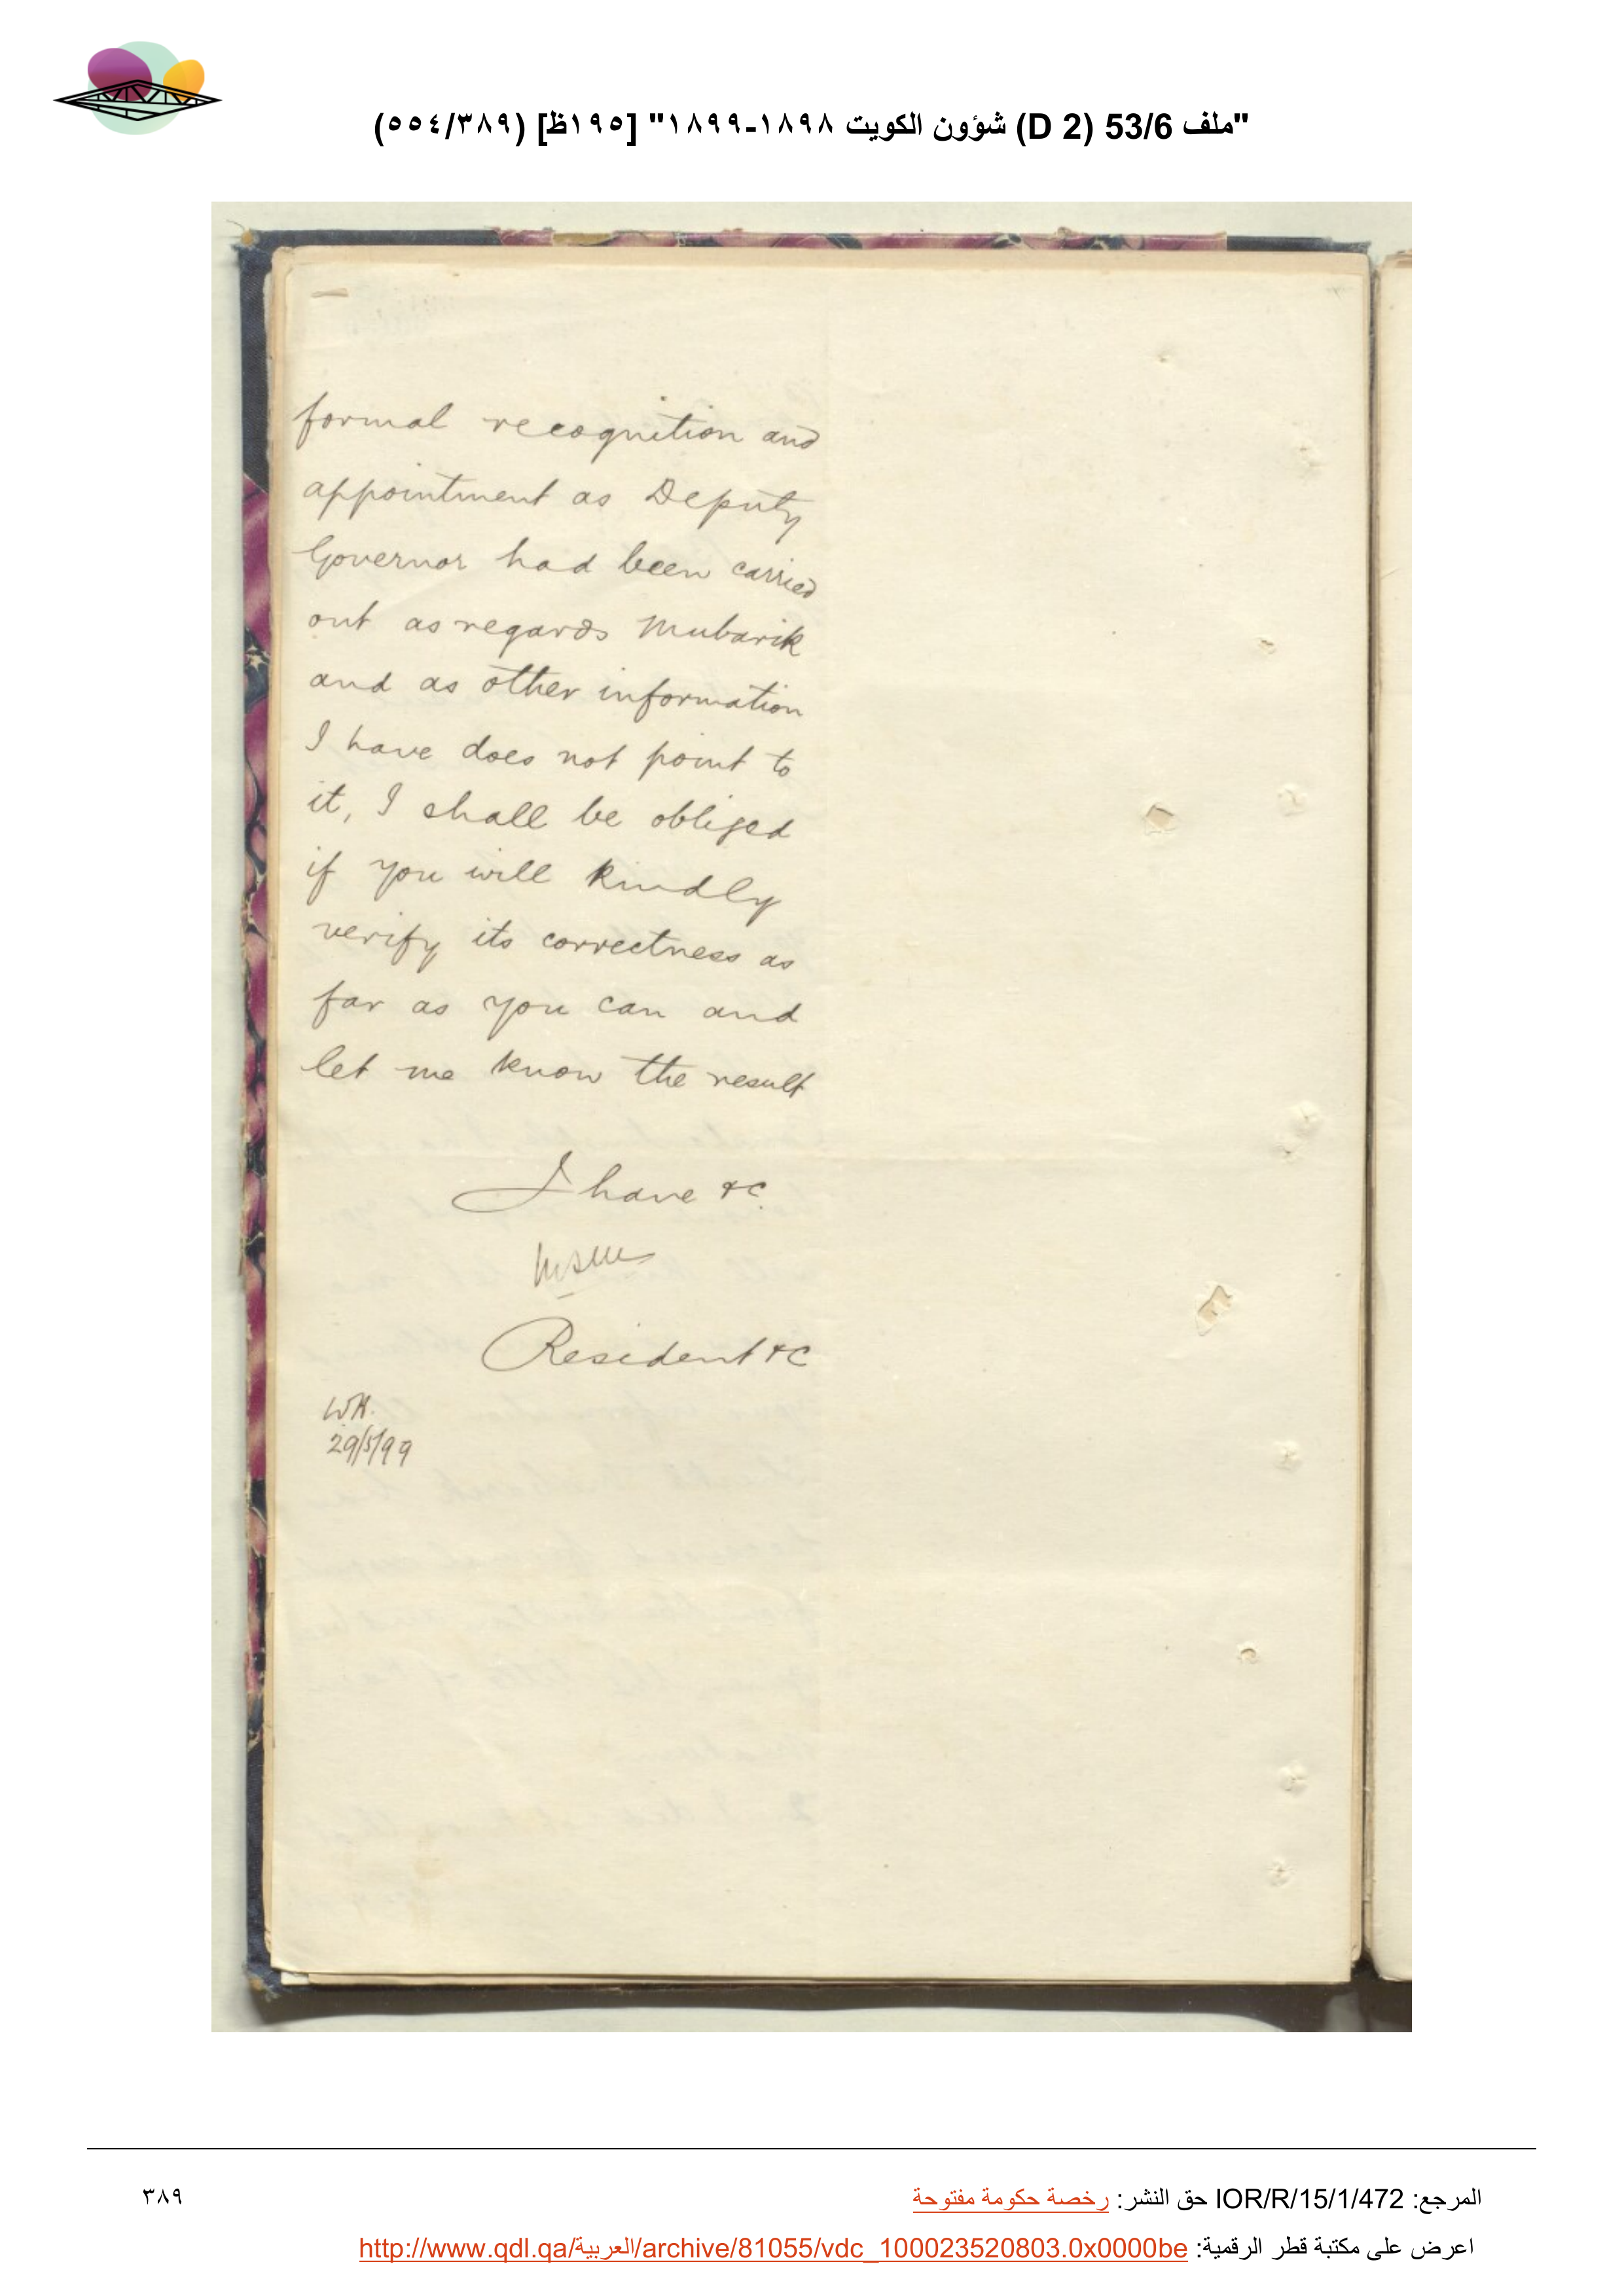 "ملف 53/6 (D 2) شؤون الكويت ١٨٩٨-١٨٩٩" [١٩٥ظ] (٥٥٤/٣٨٩)
formal recognition and
appointment as Deputy
Governor had been carried
out as regards Mubarik
and as other information
I have does not point to
it, I shall be obliged
if you will kindly
verify its correctness as
far as you can and
let me know the result
I have &c.
Resident &c
WH.
29/5/99
المرجع: IOR/R/15/1/472 حق النشر: رخصة حكومة مفتوحة
٣٨٩
اعرض على مكتبة قطر الرقمية: http://www.qdl.qa/العربية/archive/81055/vdc_100023520803.0x0000be